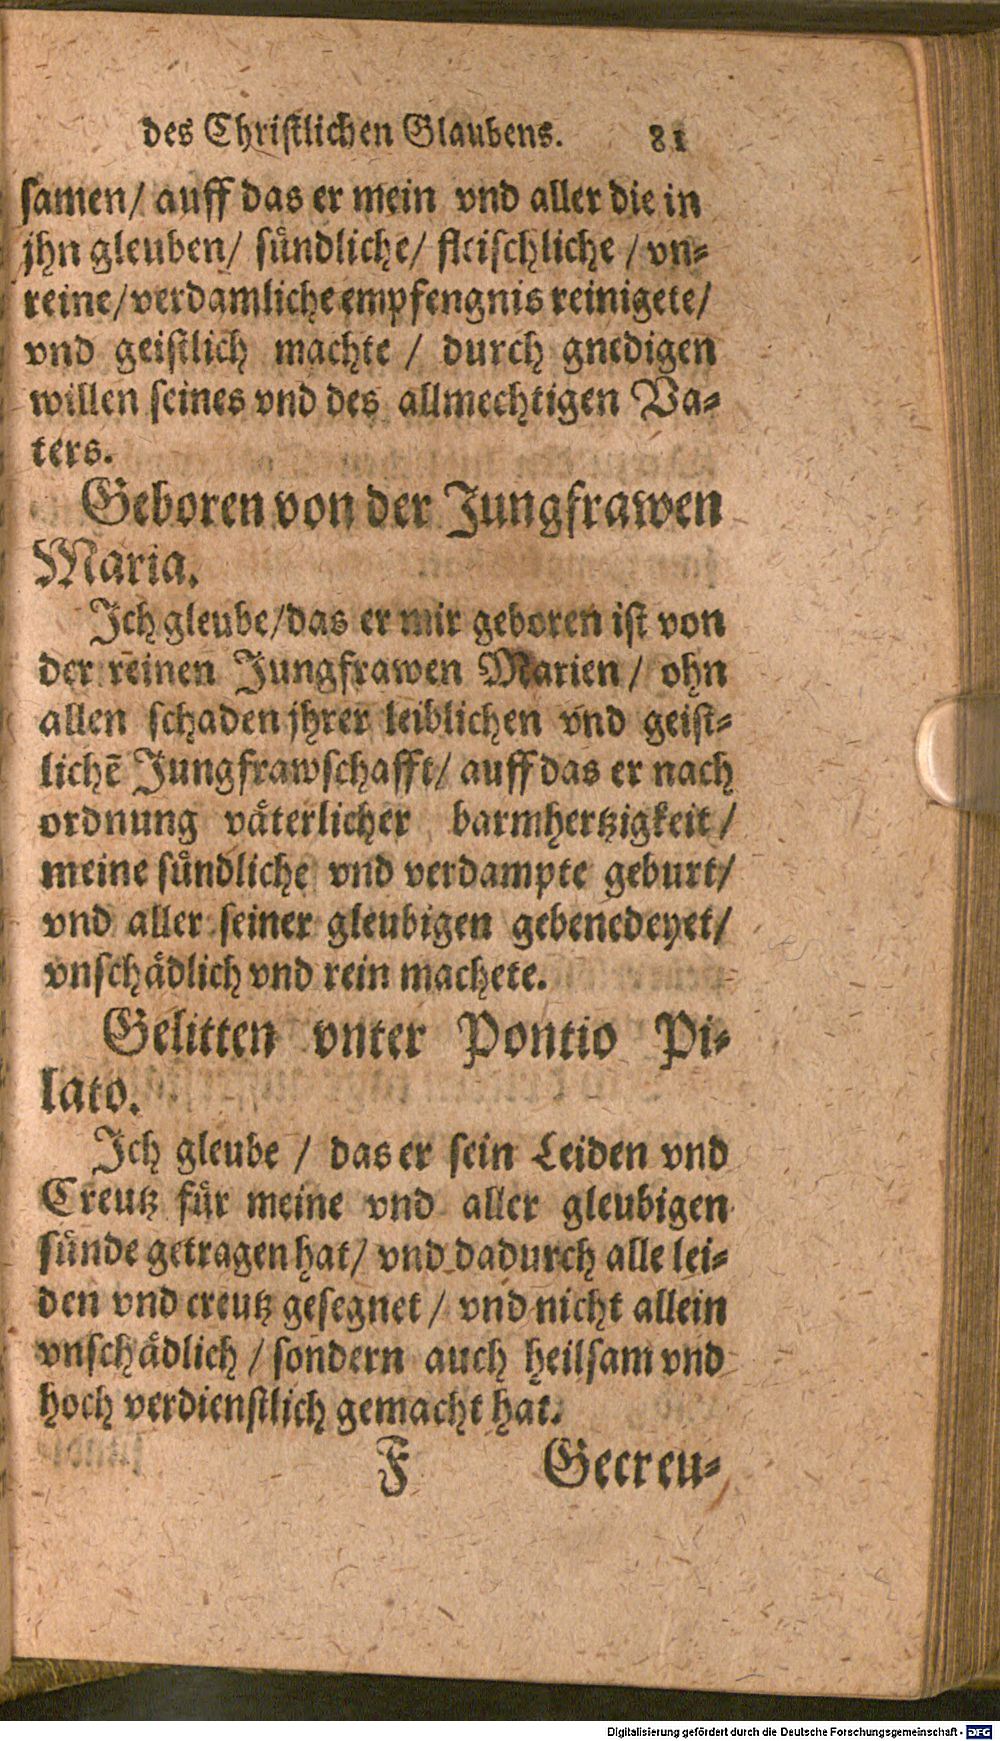 des Christlichen Glaubens. 81
samen/ auff das er mein vnd aller die in
jhn gleuben/ sündliche/ fleischliche / vn⸗
reine/ verdamliche empfengnis reinigete/
vnd geistlich machte / durch gnedigen
willen seines vnd des allmechtigen Va⸗
ters.
Geboren von der Jungfrawen
Maria.
Ich gleube/das er mir geboren ist von
der reinen Jungfrawen Marien/ ohn
allen schaden jhrer leiblichen vnd geist⸗
lichẽ Jungfrawschafft/ auff das er nach
ordnung väterlicher barmhertzigkeit/
meine sündliche vnd verdampte geburt/
vnd aller seiner gleubigen gebenedeyet/
vnschädlich vnd rein machete.
Gelitten vnter Pontio Pi⸗
lato.
Ich gleube / das er sein Leiden vnd
Creutz für meine vnd aller gleubigen
sünde getragen hat/ vnd dadurch alle lei⸗
den vnd creutz gesegnet / vnd nicht allein
vnschädlich / sondern auch heilsam vnd
hoch verdienstlich gemacht hat.
F Gecreu⸗
Digitalisierung gefördert durch die Deutsche Forschungsgemeinschaft - DFG